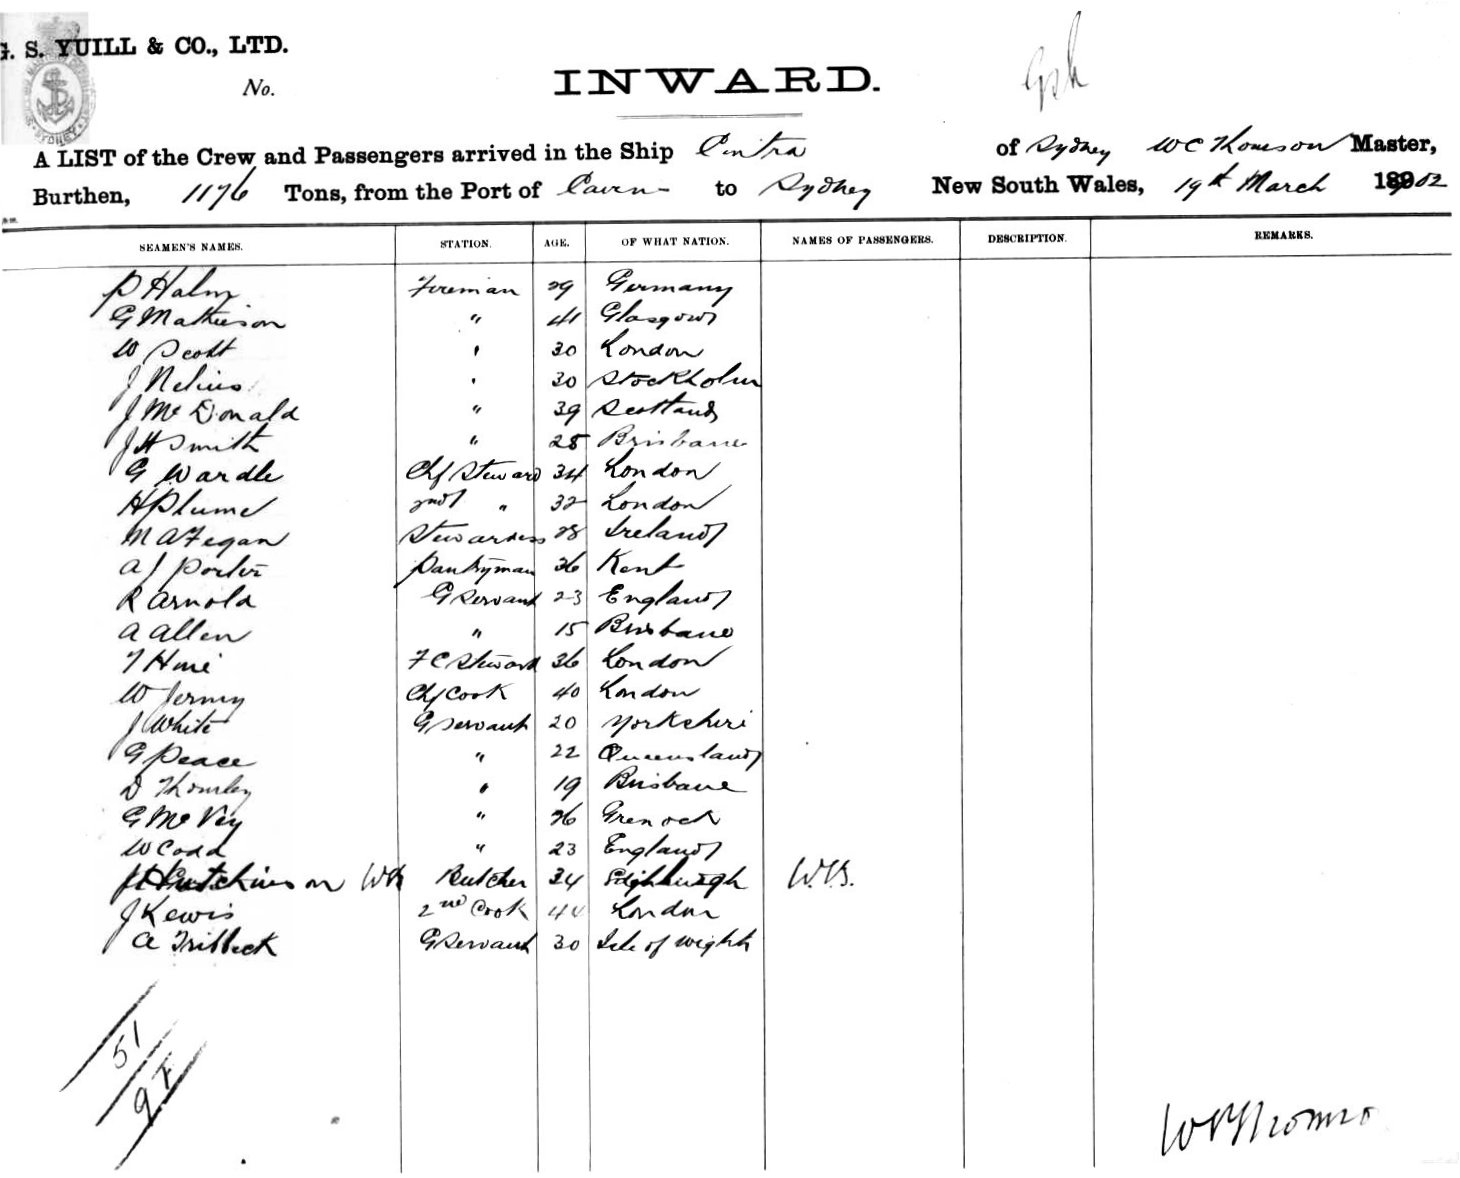 G. S. YUILL & CO., LTD.
No.
INWARD.
A LIST of the Crew and Passengers arrived in the Ship Cintra of Sydney W C Thomson Master,
Burthen, 1176 Tons, from the Port of Cairns to Sydney New South Wales, 19th March 1902
SEAMEN'S NAMES. STATION. AGE. OF WHAT NATION. NAMES OF PASSENGERS. DESCRIPTION. REMARKS.
P Halm Fireman 29 Germany
G Mathieson " 41 Glasgow
W Scott " 30 London
J Nelius " 30 Stockholm
J McDonald " 39 Scotland
J H Smith " 28 Brisbane
G Wardle Chf Steward 34 London
H Plume 2nd " 32 London
M A Fegan Stewardess 28 Ireland
A J Porter Pantryman 36 Kent
R Arnold G Servant 23 England
A Allen " 15 Brisbane
T F C Steward 36 London
W Chf Cook 40 London
J White G Servant 20 Yorkshire
G Peace " 22 Queensland
D " 19 Brisbane
G McVey " 26 Grenock
W Codd " 23 England
J Hutchinson WB Butcher 34 Edighburgh W.B.
J Lewis 2nd Cook 44 London
A Tribbeck G Servant 30 Isle of Wight
51